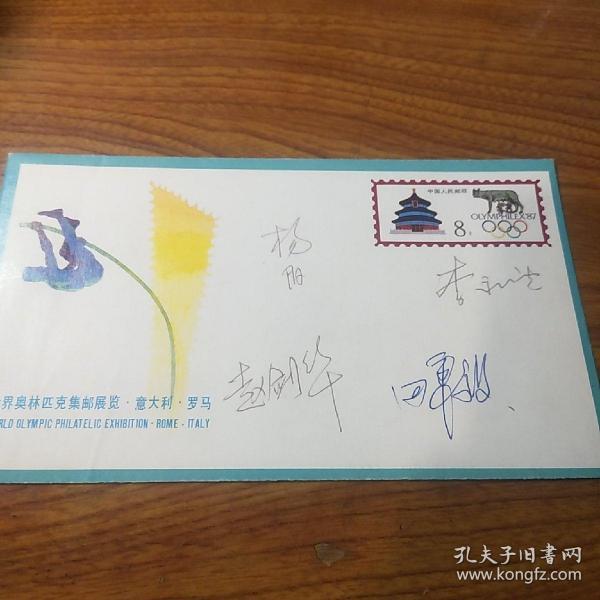 中国人民邮政
8分
OLYMPHILEX'87
杨阳
李永波
赵剑华
田秉毅
界奥林匹克集邮展览·意大利·罗马
RLD OLYMPIC PHILATELIC EXHIBITION·ROME·ITALY
孔夫子旧书网
www.kongfz.com